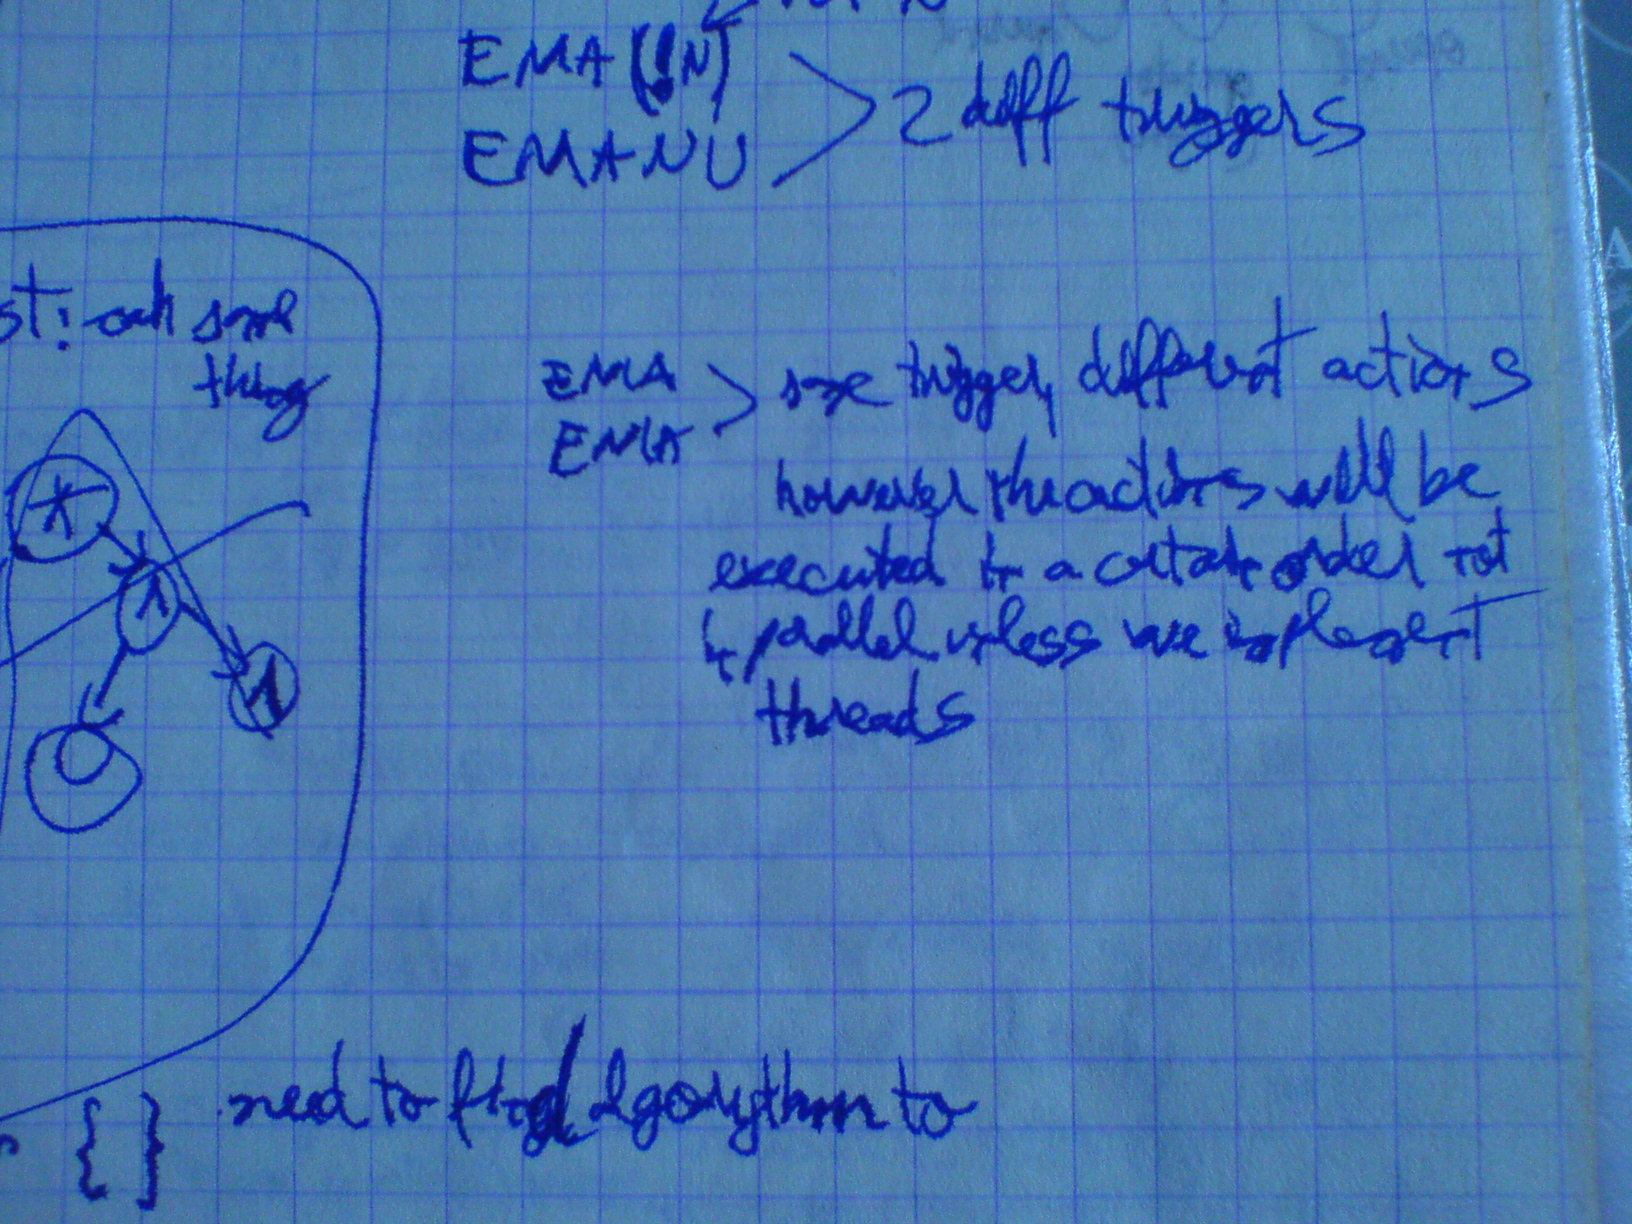 EMA (!N)
EMANU > 2 diff triggers
st: ach same
thing
EMA > same trigger, different actions
EMA
however the actions will be
executed in a certain order not
in parallel unless we implement
threads
{ } need to find algorythm to